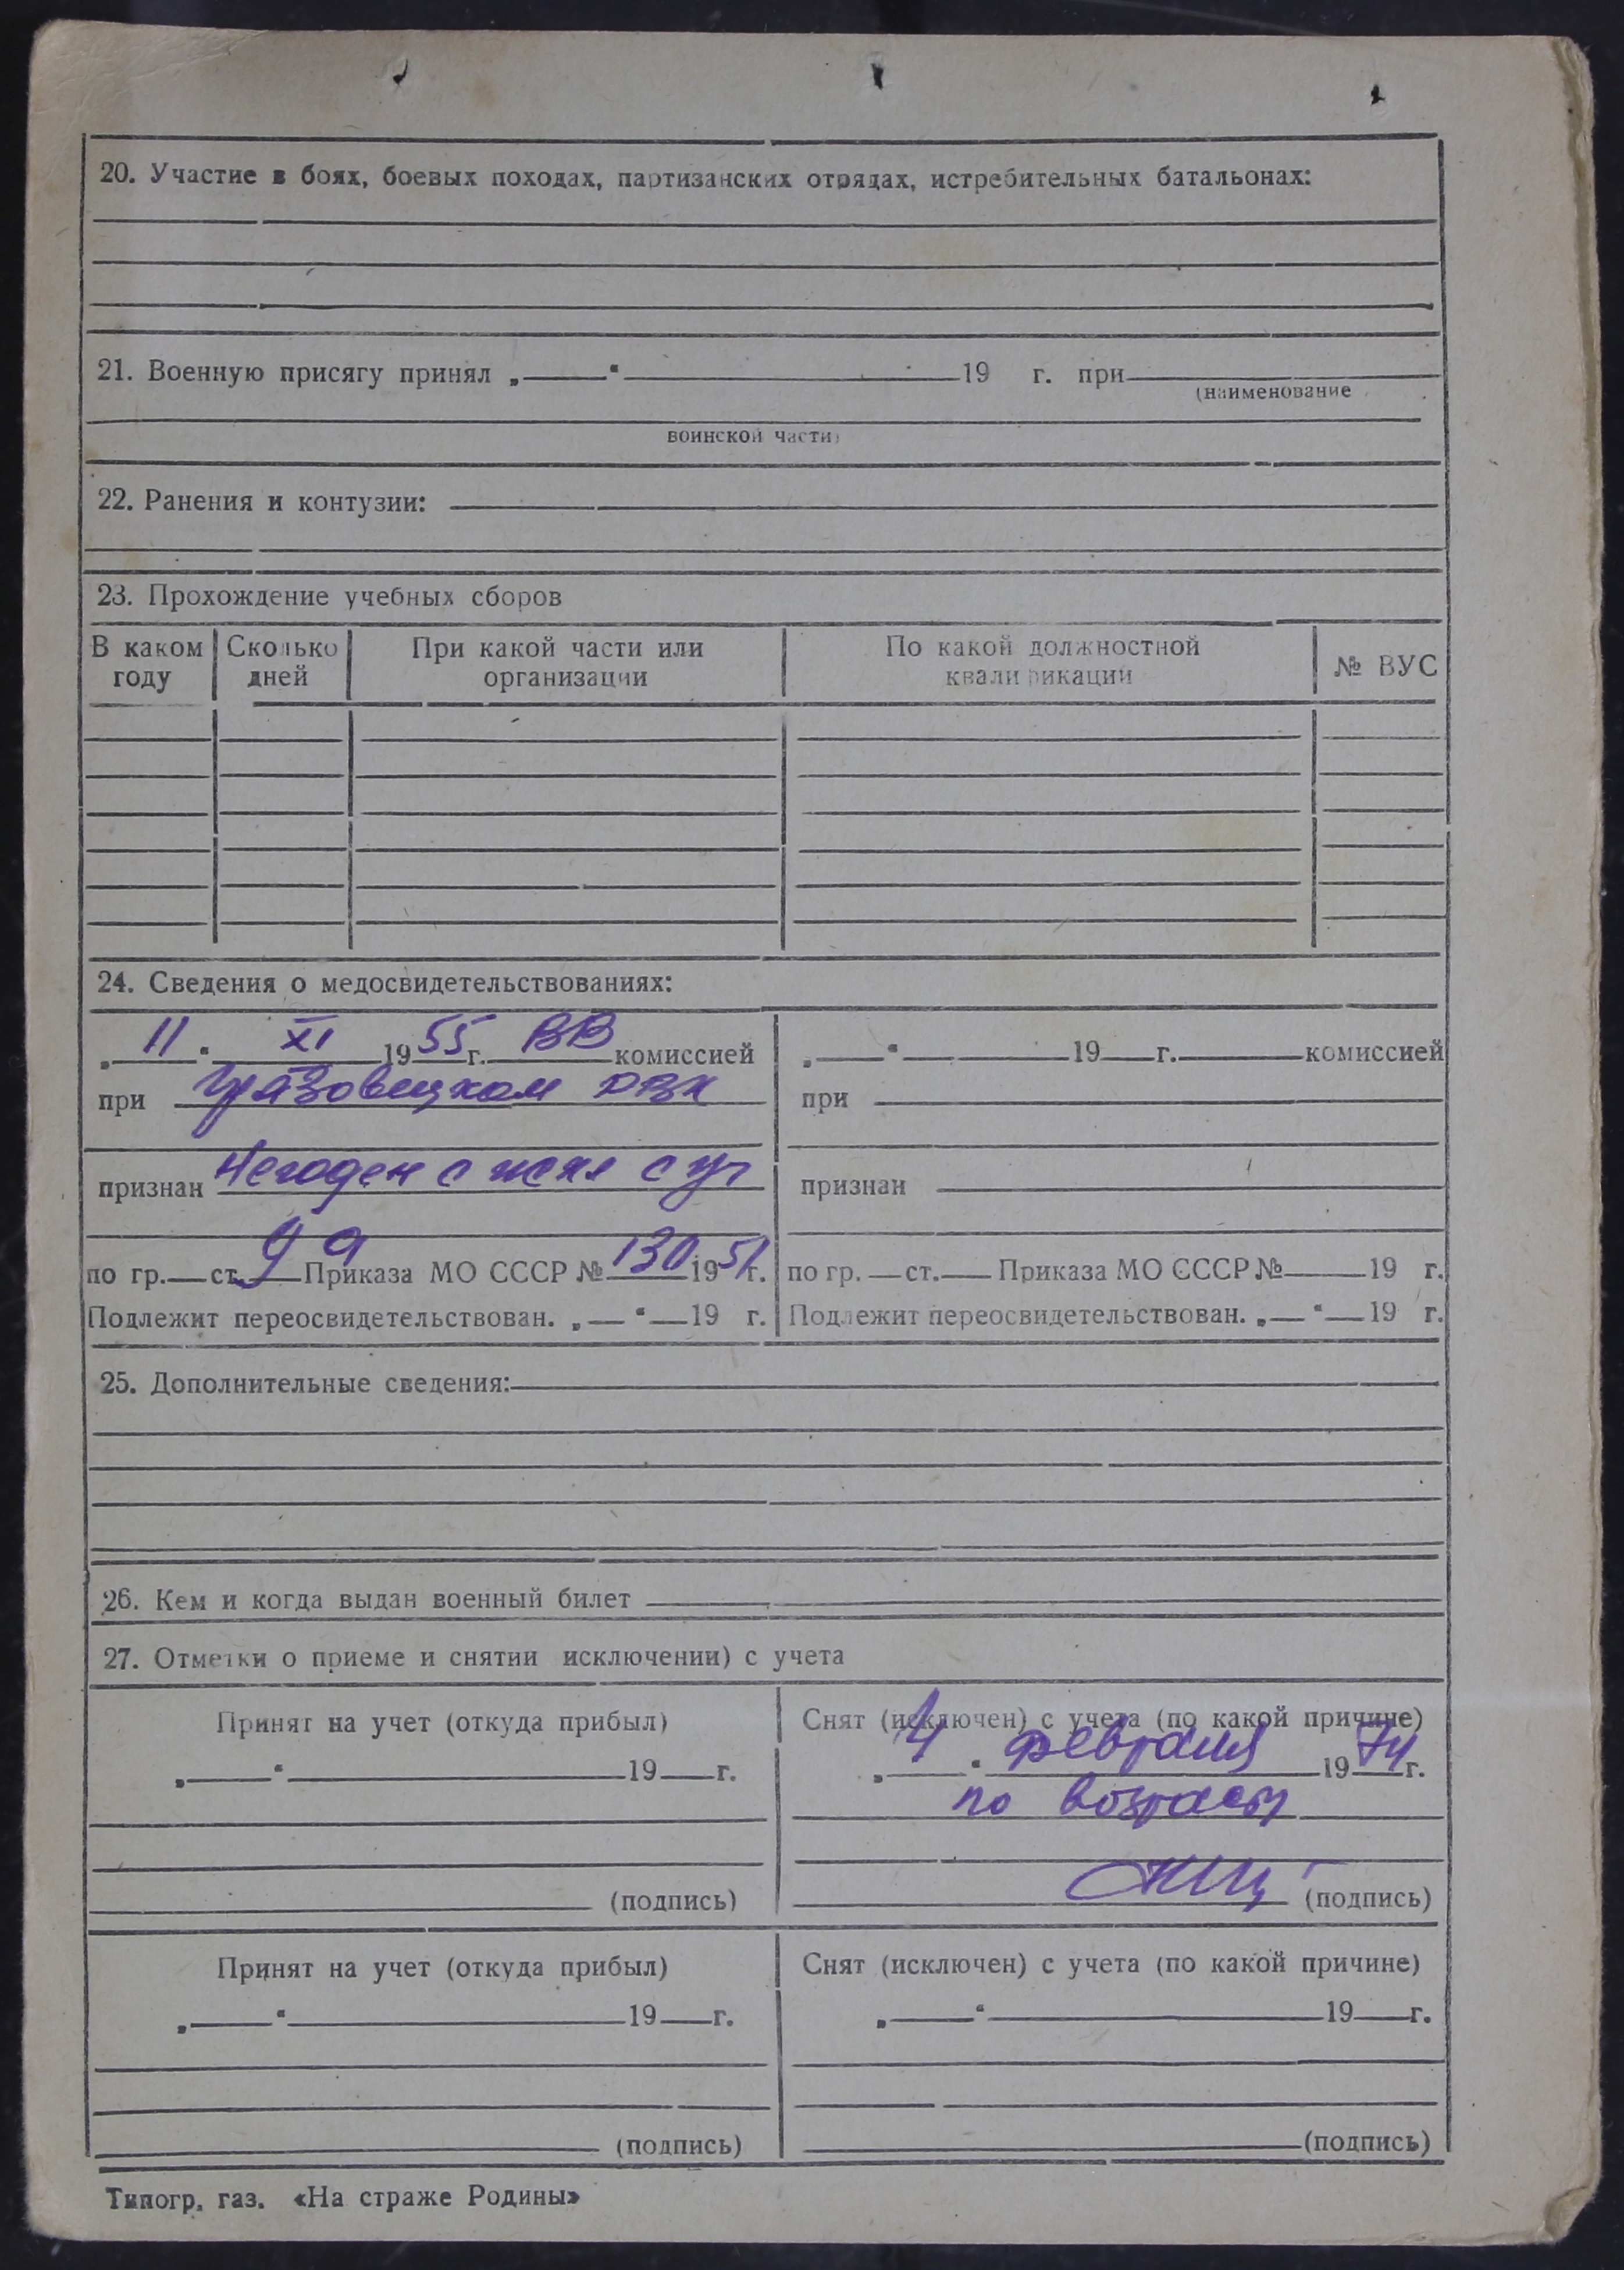 20. Участие в боях, боевых походах, партизанских отрядах, истребительных батальонах:
21. Военную присягу принял „ “ 19 г. при
(наименование
воинской части)
22. Ранения и контузии:
23. Прохождение учебных сборов
В каком году
Сколько дней
При какой части или организации
По какой должностной квали рикации
№ ВУС
24. Сведения о медосвидетельствованиях:
„ 11 “ XI 19 55 г. ВВ комиссией
при Грязовецком РВК
признан Негоден с искл с уч
по гр. ст. 9а Приказа МО СССР № 130 1951 г.
Подлежит переосвидетельствован. „ “ 19 г.
„ “ 19 г. комиссией
при
признан
по гр. ст. Приказа МО СССР № 19 г.
Подлежит переосвидетельствован. „ “ 19 г.
25. Дополнительные сведения:
26. Кем и когда выдан военный билет
27. Отметки о приеме и снятии исключении) с учета
Принят на учет (откуда прибыл)
„ “ 19 г.
(подпись)
Снят (исключен) с учета (по какой причине)
„ 4 “ февраля 19 74 г.
по возрасту
(подпись)
Принят на учет (откуда прибыл)
„ “ 19 г.
(подпись)
Снят (исключен) с учета (по какой причине)
„ “ 19 г.
(подпись)
Типогр. газ. «На страже Родины»